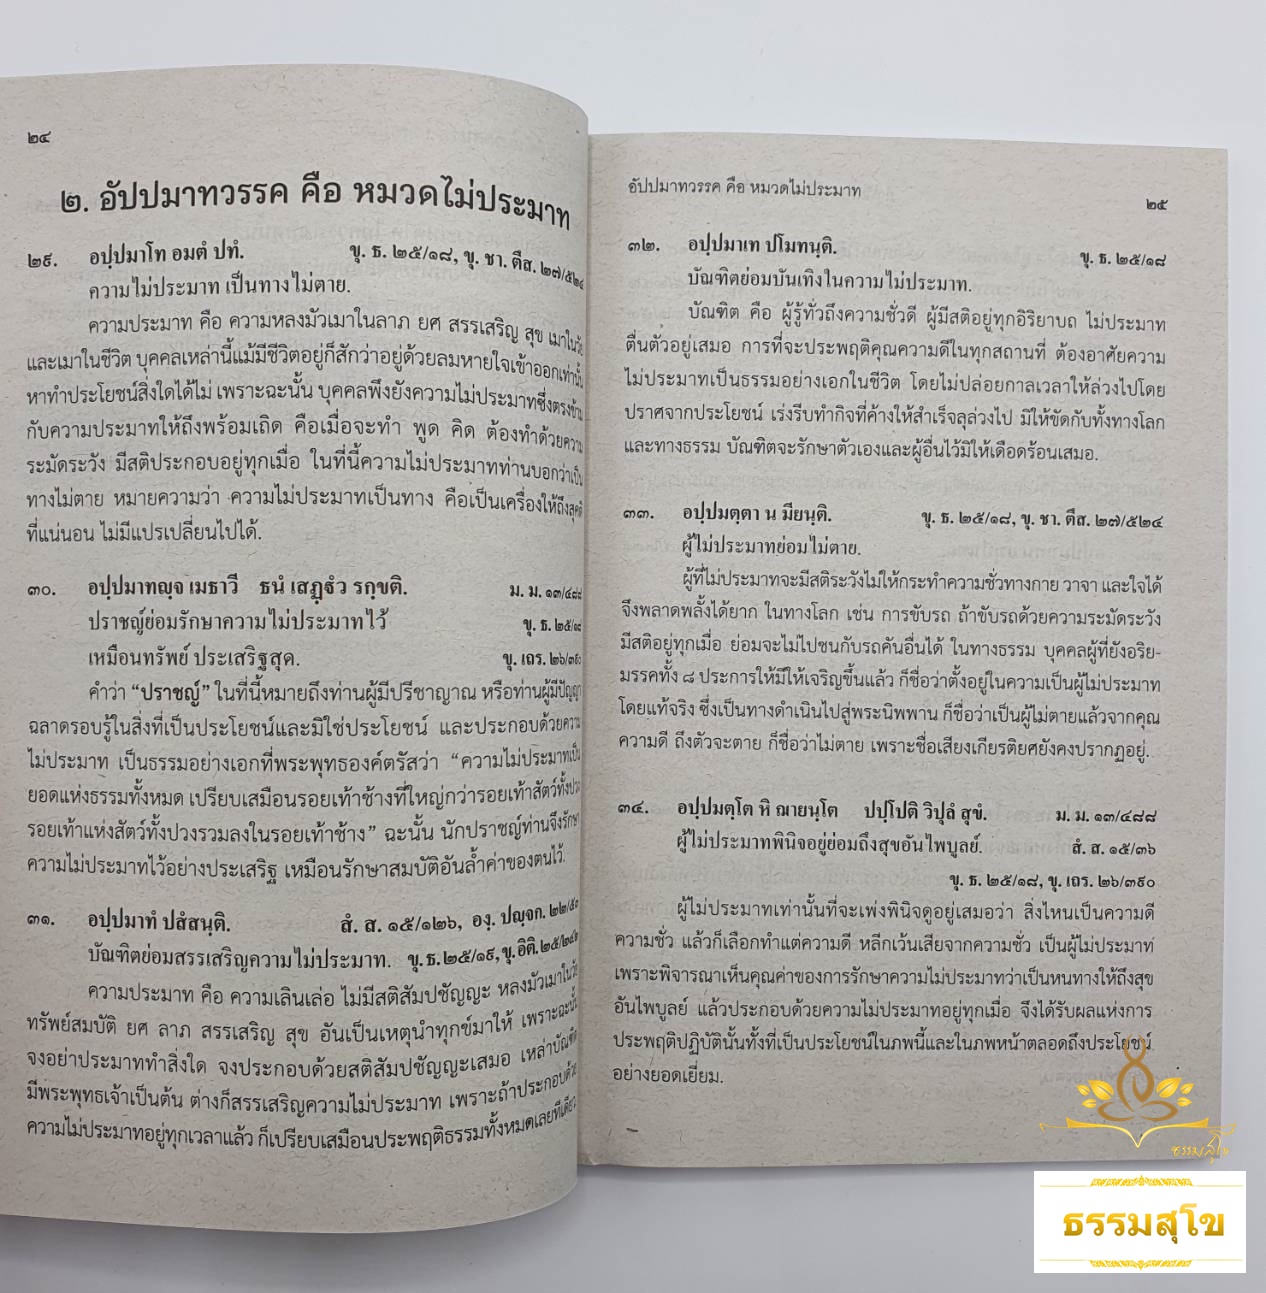 ๒๔
๒. อัปปมาทวรรค คือ หมวดไม่ประมาท
๒๙. อปฺปมาโท อมตํ ปทํ. ขุ. ธ. ๒๕/๑๘, ขุ. ชา. ตึส. ๒๗/๕๒๔
ความไม่ประมาท เป็นทางไม่ตาย.
ความประมาท คือ ความหลงมัวเมาในลาภ ยศ สรรเสริญ สุข เมาในวัย
และเมาในชีวิต บุคคลเหล่านี้แม้มีชีวิตอยู่ก็สักว่าอยู่ด้วยลมหายใจเข้าออกเท่านั้น
หาทำประโยชน์สิ่งใดได้ไม่ เพราะฉะนั้น บุคคลพึงยังความไม่ประมาทซึ่งตรงข้าม
กับความประมาทให้ถึงพร้อมเถิด คือเมื่อจะทำ พูด คิด ต้องทำด้วยความ
ระมัดระวัง มีสติประกอบอยู่ทุกเมื่อ ในที่นี้ความไม่ประมาทท่านบอกว่าเป็น
ทางไม่ตาย หมายความว่า ความไม่ประมาทเป็นทาง คือเป็นเครื่องให้ถึงสุคติ
ที่แน่นอน ไม่มีแปรเปลี่ยนไปได้.
๓๐. อปฺปมาทญฺจ เมธาวี ธนํ เสฏฺฐํว รกฺขติ. ม. ม. ๑๓/๔๘๘
ปราชญ์ย่อมรักษาความไม่ประมาทไว้ ขุ. ธ. ๒๕/๑๘
เหมือนทรัพย์ ประเสริฐสุด. ขุ. เถร. ๒๖/๓๙๐
คำว่า “ปราชญ์” ในที่นี้หมายถึงท่านผู้มีปรีชาญาณ หรือท่านผู้มีปัญญา
ฉลาดรอบรู้ในสิ่งที่เป็นประโยชน์และมิใช่ประโยชน์ และประกอบด้วยความ
ไม่ประมาท เป็นธรรมอย่างเอกที่พระพุทธองค์ตรัสว่า “ความไม่ประมาทเป็น
ยอดแห่งธรรมทั้งหมด เปรียบเสมือนรอยเท้าช้างที่ใหญ่กว่ารอยเท้าสัตว์ทั้งปวง
รอยเท้าแห่งสัตว์ทั้งปวงรวมลงในรอยเท้าช้าง” ฉะนั้น นักปราชญ์ท่านจึงรักษา
ความไม่ประมาทไว้อย่างประเสริฐ เหมือนรักษาสมบัติอันล้ำค่าของตนไว้.
๓๑. อปฺปมาทํ ปสํสนฺติ. สํ. ส. ๑๕/๑๒๖, องฺ. ปญฺจก. ๒๒/๕๓
บัณฑิตย่อมสรรเสริญความไม่ประมาท. ขุ. ธ. ๒๕/๑๙, ขุ. อิติ. ๒๕/๒๔๒
ความประมาท คือ ความเลินเล่อ ไม่มีสติสัมปชัญญะ หลงมัวเมาในวัย
ทรัพย์สมบัติ ยศ ลาภ สรรเสริญ สุข อันเป็นเหตุนำทุกข์มาให้ เพราะฉะนั้น
จงอย่าประมาททำสิ่งใด จงประกอบด้วยสติสัมปชัญญะเสมอ เหล่าบัณฑิต
มีพระพุทธเจ้าเป็นต้น ต่างก็สรรเสริญความไม่ประมาท เพราะถ้าประกอบด้วย
ความไม่ประมาทอยู่ทุกเวลาแล้ว ก็เปรียบเสมือนประพฤติธรรมทั้งหมดเลยทีเดียว
อัปปมาทวรรค คือ หมวดไม่ประมาท ๒๕
๓๒. อปฺปมาเท ปโมทนฺติ. ขุ. ธ. ๒๕/๑๘
บัณฑิตย่อมบันเทิงในความไม่ประมาท.
บัณฑิต คือ ผู้รู้ทั่วถึงความชั่วดี ผู้มีสติอยู่ทุกอิริยาบถ ไม่ประมาท
ตื่นตัวอยู่เสมอ การที่จะประพฤติคุณความดีในทุกสถานที่ ต้องอาศัยความ
ไม่ประมาทเป็นธรรมอย่างเอกในชีวิต โดยไม่ปล่อยกาลเวลาให้ล่วงไปโดย
ปราศจากประโยชน์ เร่งรีบทำกิจที่ค้างให้สำเร็จลุล่วงไป มิให้ขัดกับทั้งทางโลก
และทางธรรม บัณฑิตจะรักษาตัวเองและผู้อื่นไว้มิให้เดือดร้อนเสมอ.
๓๓. อปฺปมตฺตา น มียนฺติ. ขุ. ธ. ๒๕/๑๘, ขุ. ชา. ตึส. ๒๗/๕๒๔
ผู้ไม่ประมาทย่อมไม่ตาย.
ผู้ที่ไม่ประมาทจะมีสติระวังไม่ให้กระทำความชั่วทางกาย วาจา และใจได้
จึงพลาดพลั้งได้ยาก ในทางโลก เช่น การขับรถ ถ้าขับรถด้วยความระมัดระวัง
มีสติอยู่ทุกเมื่อ ย่อมจะไม่ไปชนกับรถคันอื่นได้ ในทางธรรม บุคคลผู้ที่ยังอริย-
มรรคทั้ง ๘ ประการให้มีให้เจริญขึ้นแล้ว ก็ชื่อว่าตั้งอยู่ในความเป็นผู้ไม่ประมาท
โดยแท้จริง ซึ่งเป็นทางดำเนินไปสู่พระนิพพาน ก็ชื่อว่าเป็นผู้ไม่ตายแล้วจากคุณ
ความดี ถึงตัวจะตาย ก็ชื่อว่าไม่ตาย เพราะชื่อเสียงเกียรติยศยังคงปรากฏอยู่.
๓๔. อปฺปมตฺโต หิ ฌายนฺโต ปปฺโปติ วิปุลํ สุขํ. ม. ม. ๑๓/๔๘๘
ผู้ไม่ประมาทพินิจอยู่ย่อมถึงสุขอันไพบูลย์. สํ. ส. ๑๕/๓๖
ขุ. ธ. ๒๕/๑๘, ขุ. เถร. ๒๖/๓๙๐
ผู้ไม่ประมาทเท่านั้นที่จะเพ่งพินิจดูอยู่เสมอว่า สิ่งไหนเป็นความดี
ความชั่ว แล้วก็เลือกทำแต่ความดี หลีกเว้นเสียจากความชั่ว เป็นผู้ไม่ประมาท
เพราะพิจารณาเห็นคุณค่าของการรักษาความไม่ประมาทว่าเป็นหนทางให้ถึงสุข
อันไพบูลย์ แล้วประกอบด้วยความไม่ประมาทอยู่ทุกเมื่อ จึงได้รับผลแห่งการ
ประพฤติปฏิบัตินั้นทั้งที่เป็นประโยชน์ในภพนี้และในภพหน้าตลอดถึงประโยชน์
อย่างยอดเยี่ยม.
ธรรมสุโข
ธรรมสุโข